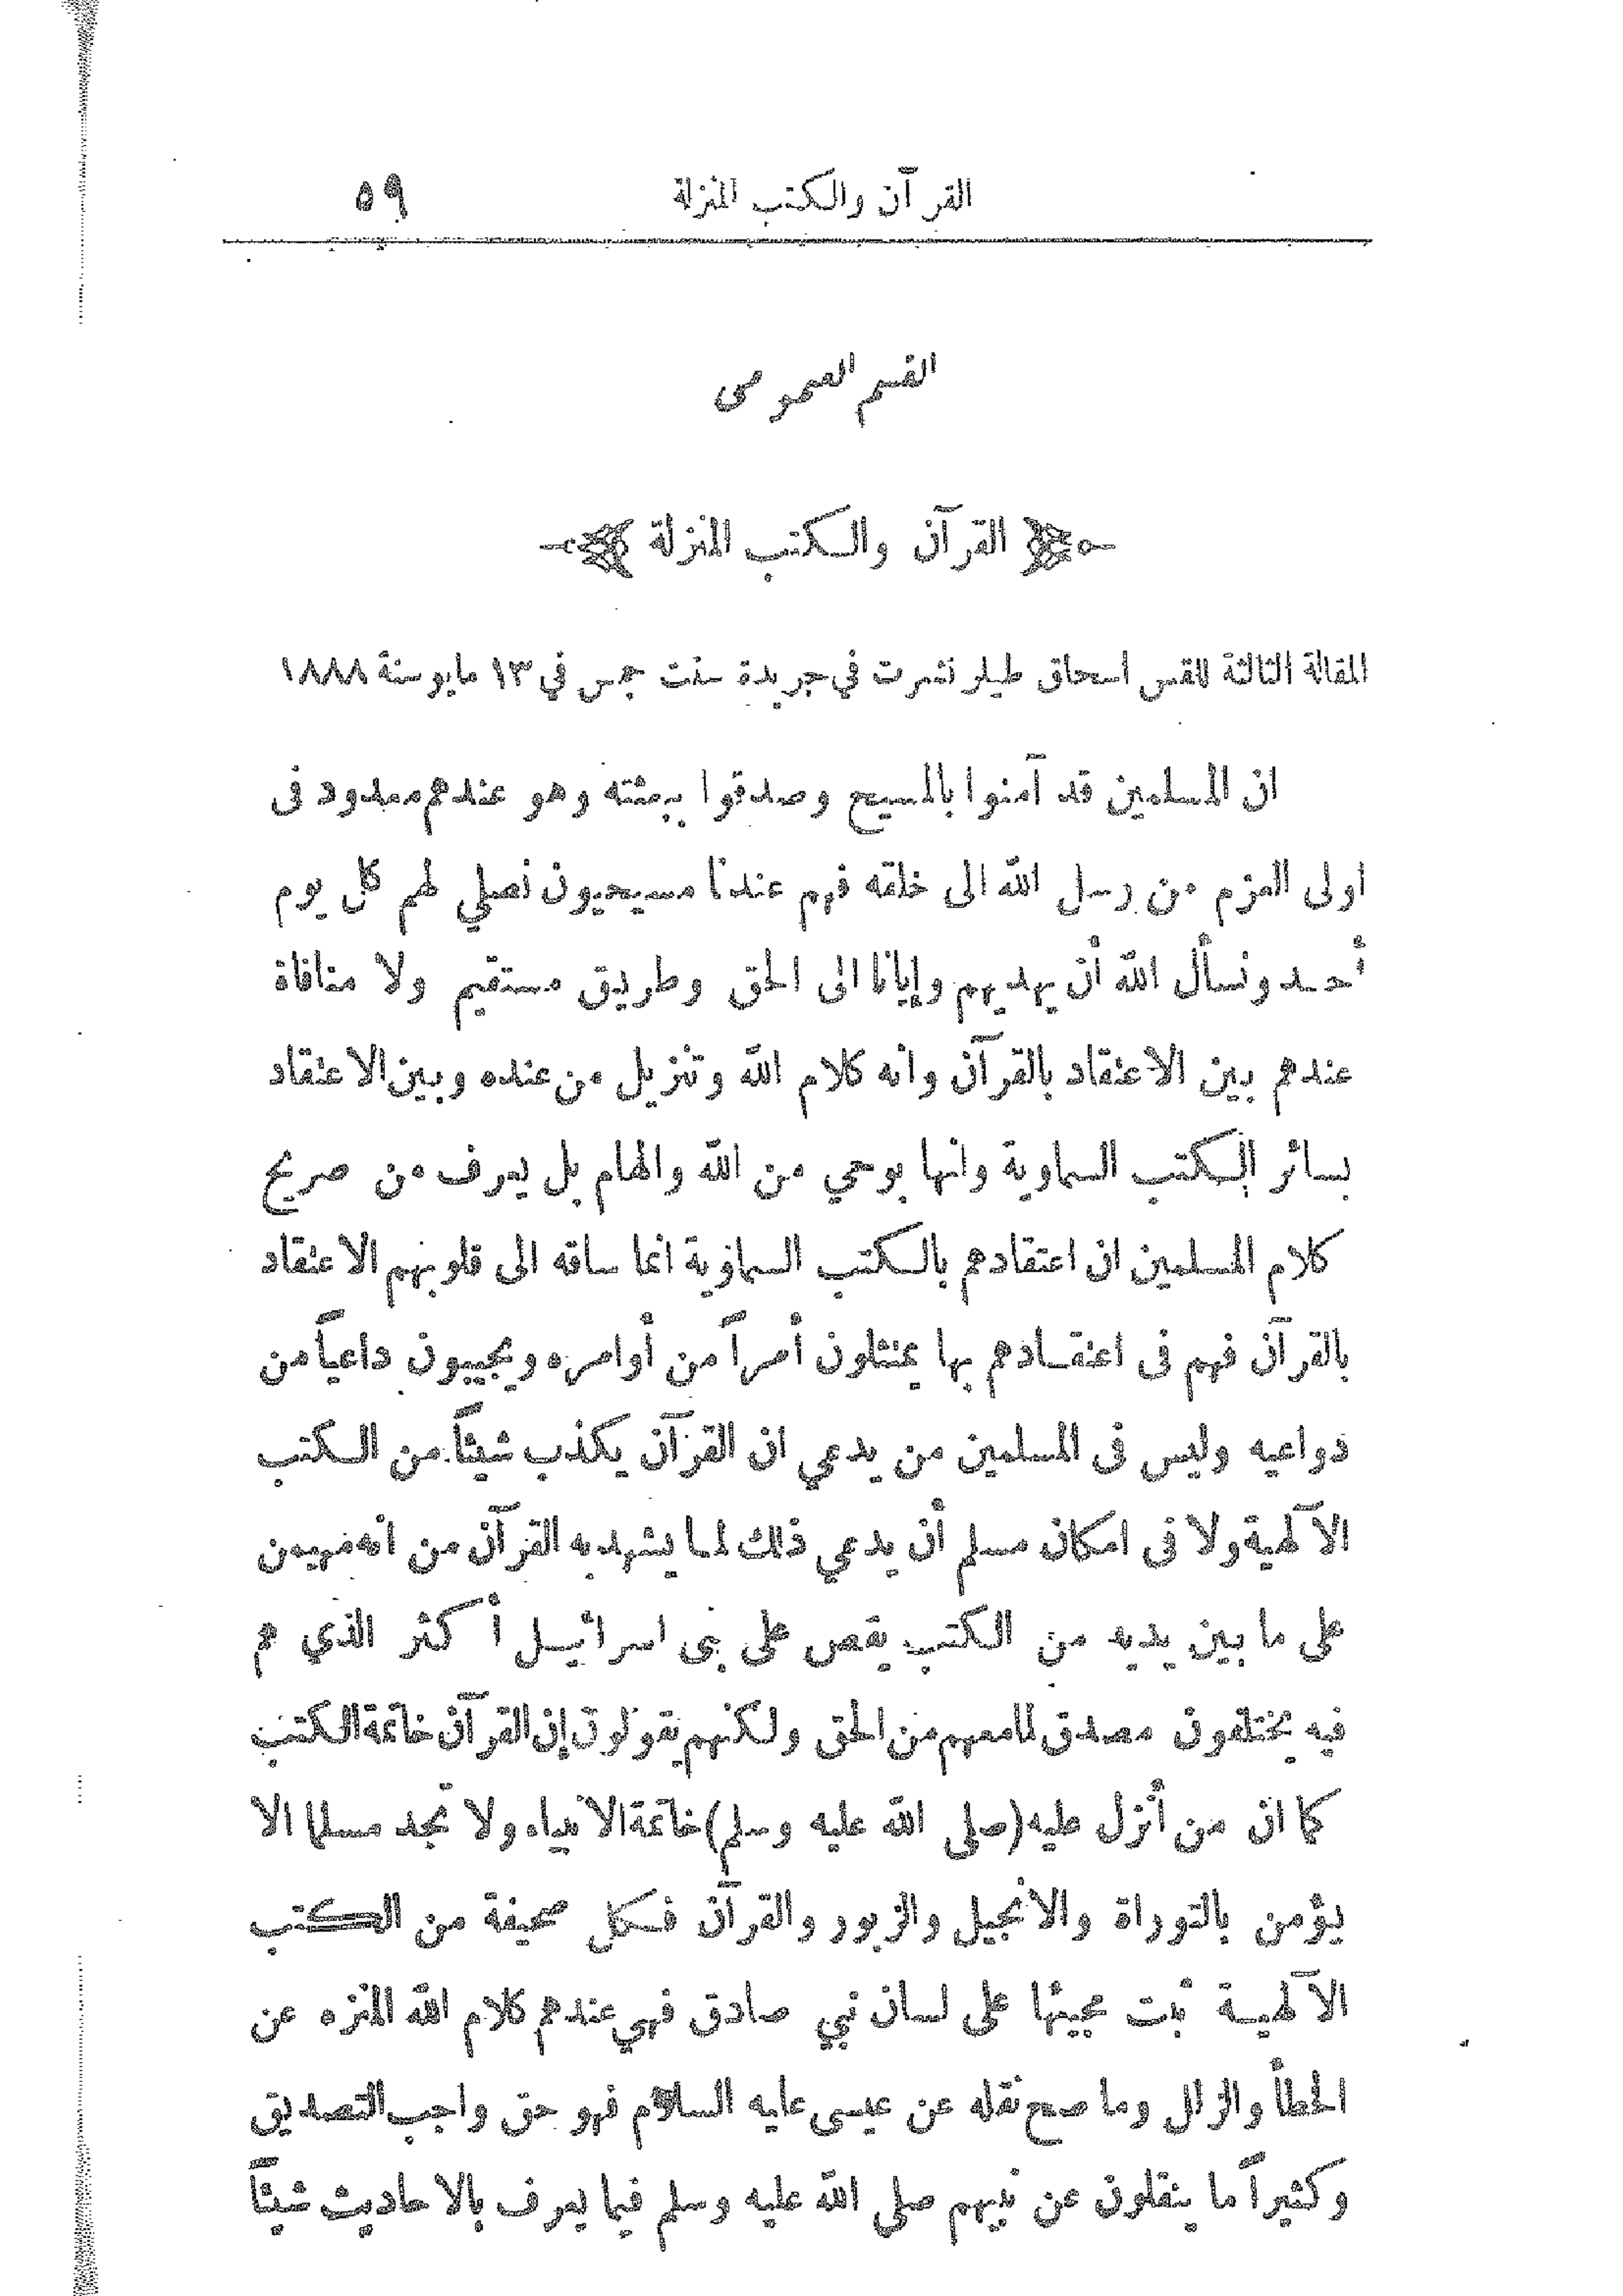 القرآن والكتب المنزلة ٥٩
القسم العمومى
القرآن والكتب المنزلة
المقالة الثالثة للقس اسحاق طيلر نشرت في جريدة سنت جمس في ١٣ مايو سنة ١٨٨٨
ان المسلمين قد آمنوا بالمسيح وصدقوا ببعثته وهو عندهم معدود فى
اولى العزم من رسل الله الى خلقه فهم عندنا مسيحيون نصلي لهم كل يوم
أحد ونسأل الله أن يهديهم وإيانا الى الحق وطريق مستقيم ولا منافاة
عندهم بين الاعتقاد بالقرآن وانه كلام الله وتنزيل من عنده وبين الاعتقاد
بسائر الكتب السماوية وانها بوحي من الله والهام بل يعرف من صريح
كلام المسلمين ان اعتقادهم بالكتب السماوية انما ساقه الى قلوبهم الاعتقاد
بالقرآن فهم فى اعتقادهم بها يمتثلون أمراً من أوامره ويجيبون داعياً من
دواعيه وليس فى المسلمين من يدعي ان القرآن يكذب شيئاً من الكتب
الآلهية ولا فى امكان مسلم أن يدعي ذلك لما يشهد به القرآن من انه مهيمن
على ما بين يديه من الكتب يقص على بنى اسرائيل أكثر الذي هم
فيه يختلفون مصدق لما معهم من الحق ولكنهم يقولون إن القرآن خاتمة الكتب
كما ان من أنزل عليه (صلى الله عليه وسلم) خاتمة الانبياء ولا تجد مسلما الا
يؤمن بالتوراة والانجيل والزبور والقرآن فكل صحيفة من الكتب
الآلهية ثبت مجيئها على لسان نبي صادق فهي عندهم كلام الله المنزه عن
الخطأ والزلل وما صح نقله عن عيسى عليه السلام فهو حق واجب التصديق
وكثيراً ما ينقلون عن نبيهم صلى الله عليه وسلم فيما يعرف بالاحاديث شيئاً